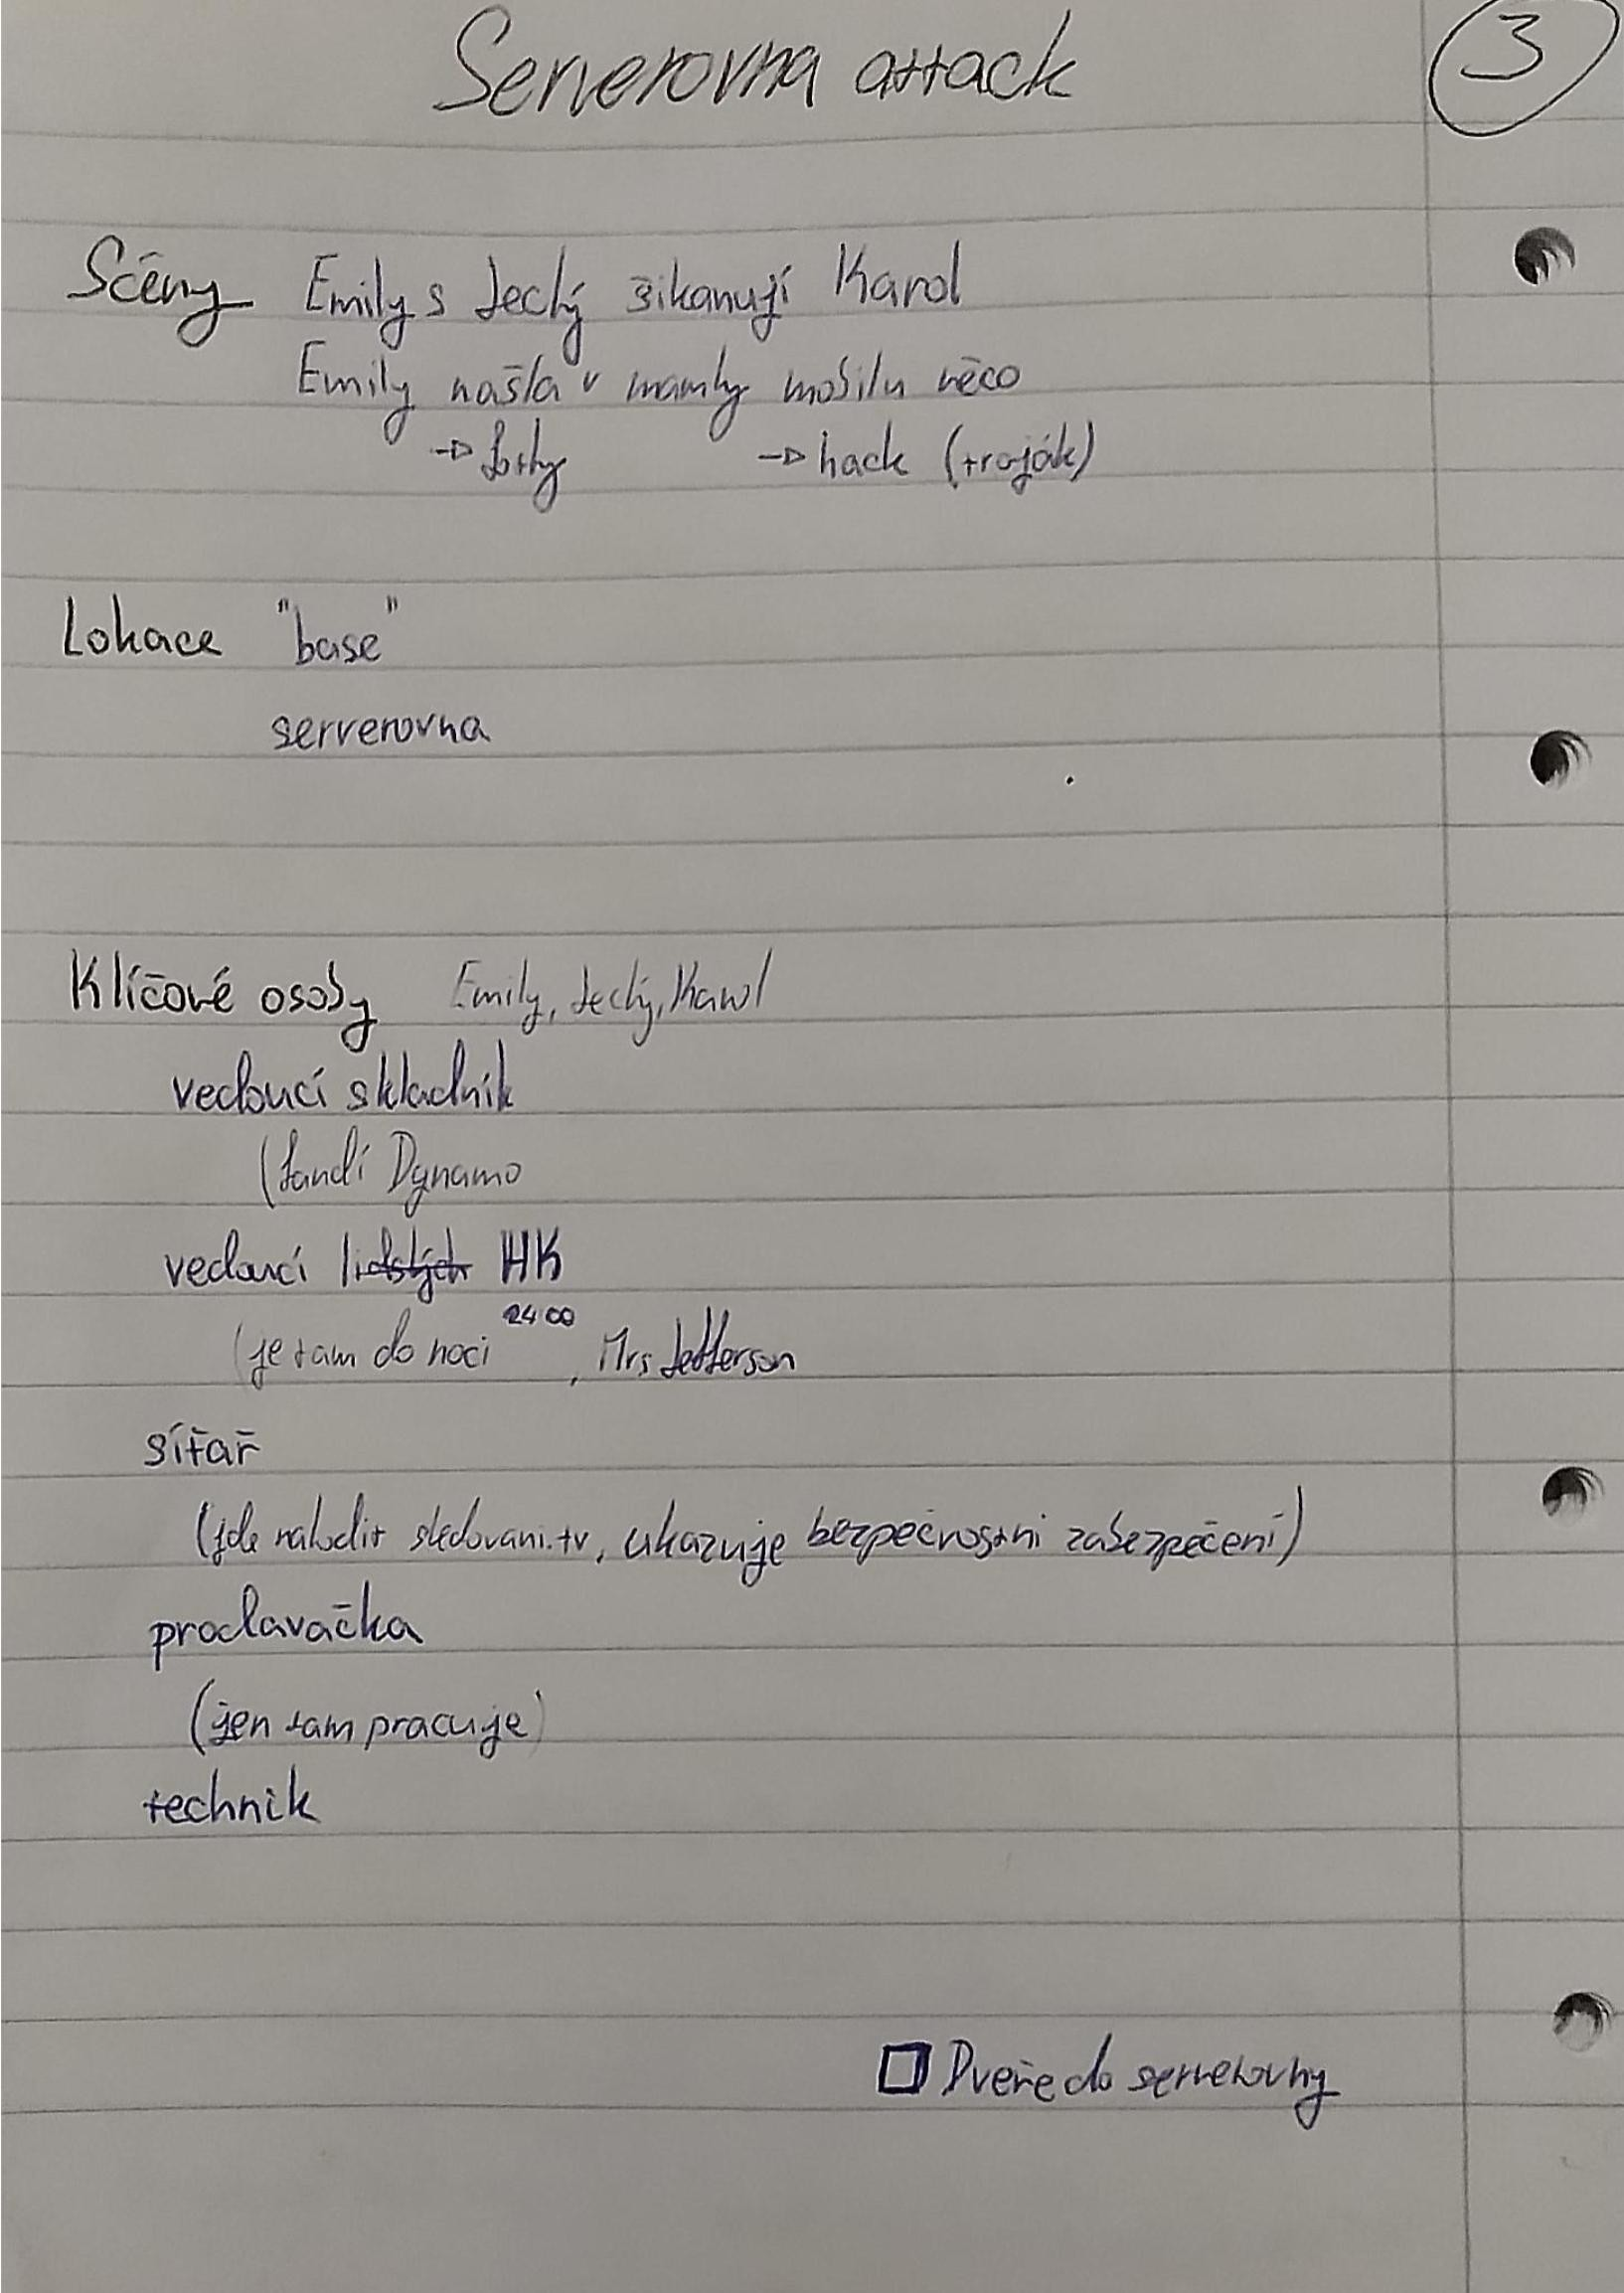 Serverovna attack
3
Scény Emily s Jechý šikanují Karol
Emily našla v mamky mobilu něco
→ fotky → hack (troják)
Lokace "base"
serverovna
Klíčové osoby Emily, Jechý, Karol
vedoucí skladník
(fandí Dynamo
vedoucí lidských HK
(je tam do noci 24 00, Mrs Jefferson
síťař
(jde nahodit sledovani.tv, ukazuje bezpečnostni zabezpečení)
prodavačka
(jen tam pracuje)
technik
Dveře do serverovny